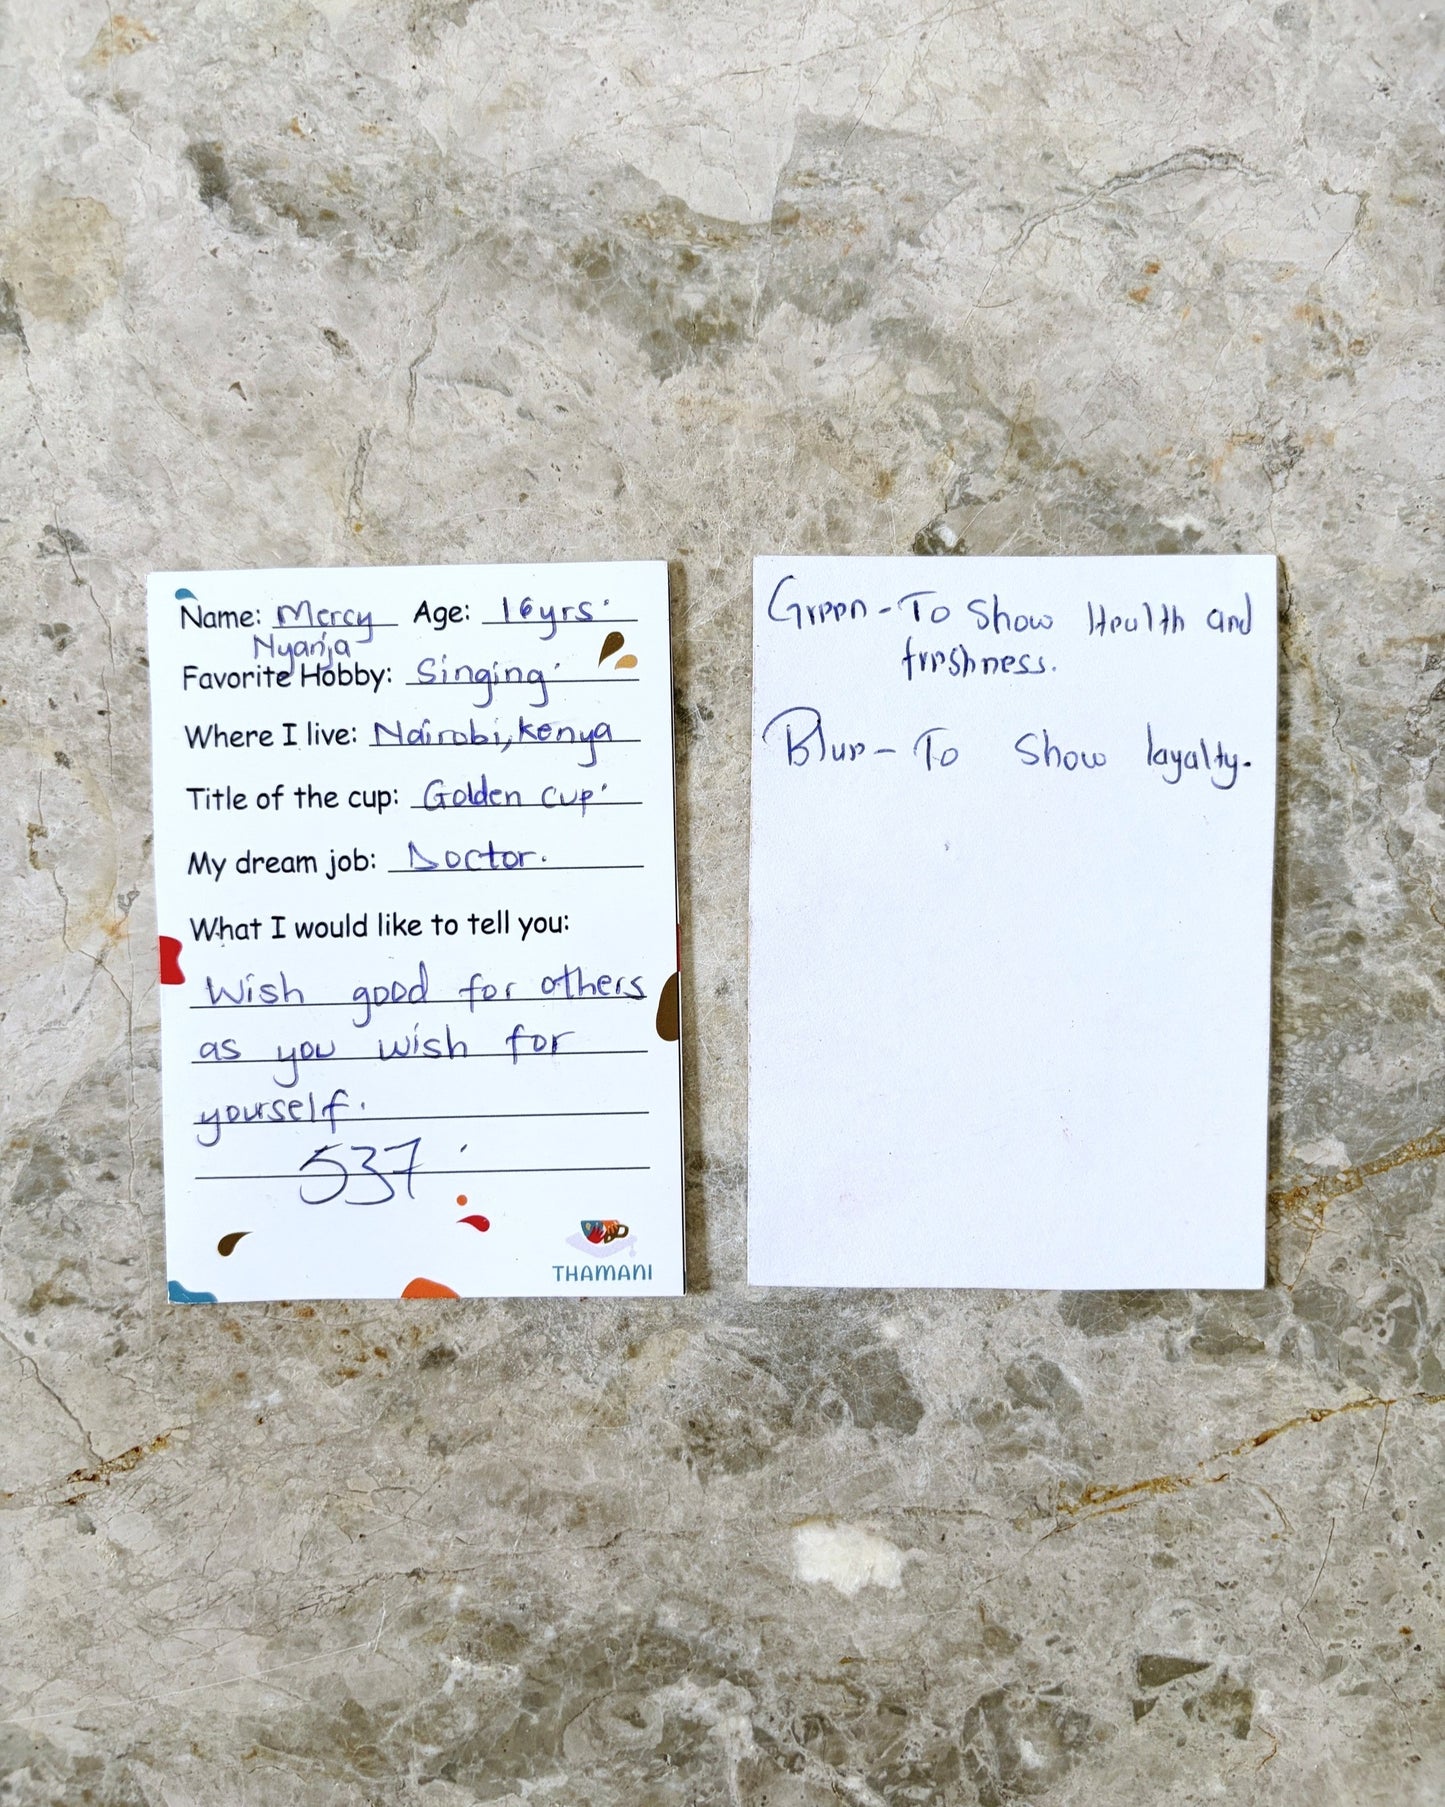 Name: Mercy Age: 16yrs.
Nyanja
Favorite Hobby: Singing.
Where I live: Nairobi, Kenya
Title of the cup: Golden cup.
My dream job: Doctor.
What I would like to tell you:
Wish good for others
as you wish for
yourself.
537
THAMANI
Green - To Show Health and
freshness.
Blue - To Show loyalty.